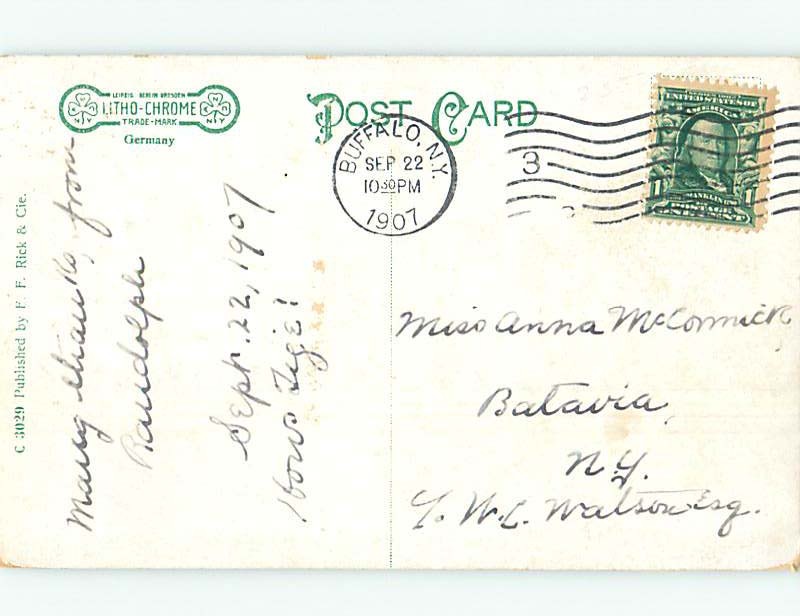 LEIPZIG BERLIN DRESDEN
LITHO-CHROME
TRADE-MARK
K N Y
K N Y
Germany
POST CARD
BUFFALO, N.Y.
SEP 22
10 30 PM
1907
3
UNITED STATES OF
AMERICA
1 1
FRANKLIN
C 3029 Published by F. E. Rick & Cie.
Many thanks, from
Randolph
Sept. 22, 1907
Hows Tige!
Miss Anna McCormick,
Batavia,
N.Y.
W. L. Watson Esq.